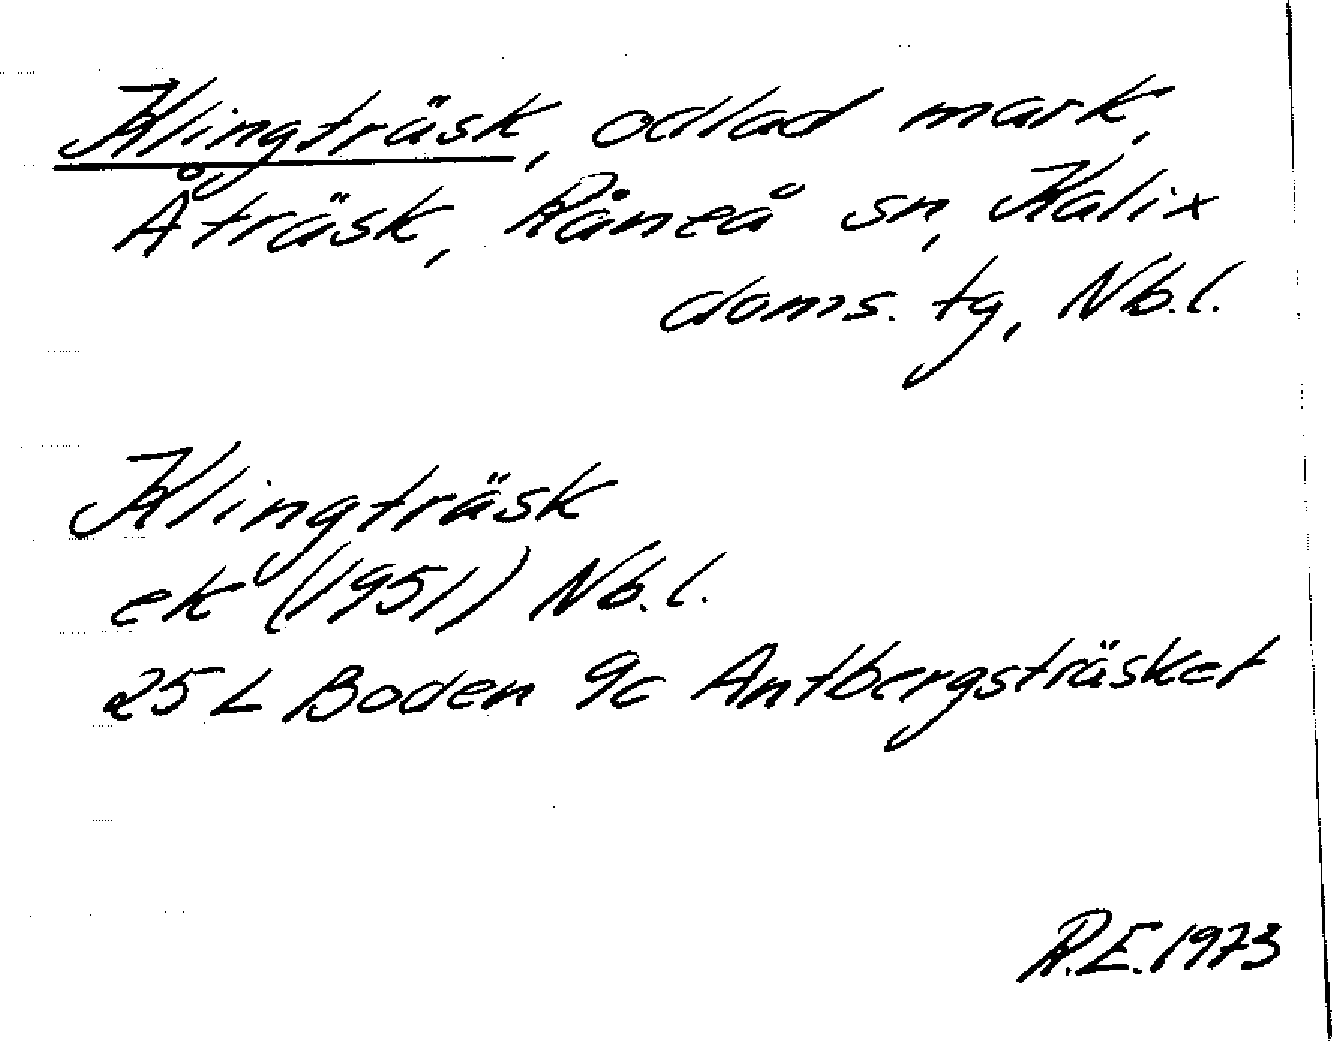 Klingträsk, odlad mark,
Åträsk, Råneå sn, Kalix
doms. tg, Nb.l.
Klingträsk
ek (1951) Nb.l.
25 L Boden 9c Antbergsträsket
R.E. 1973